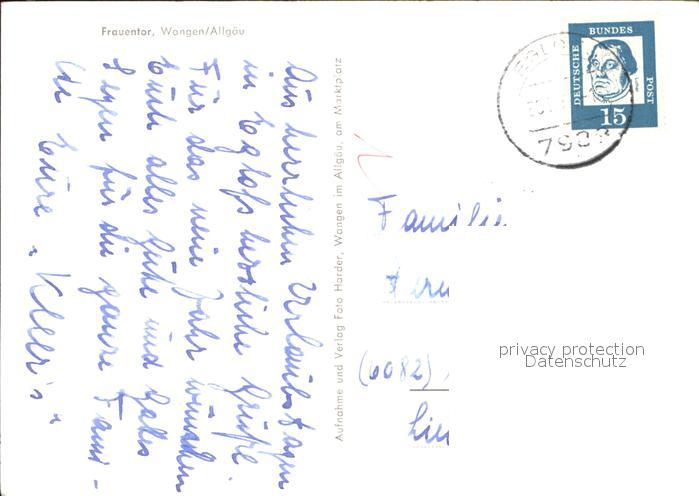 Frauentor, Wangen/Allgäu
Aus herrlichen Urlaubstagen
in Eglofs herzliche Grüße.
Für das neue Jahr wünschen
Euch alles Gute und Gottes
Segen für die ganze Fami-
lie Eure "Kleer's"
Aufnahme und Verlag Foto Harder, Wangen im Allgäu, am Marktplatz
EGLO
7981
DEUTSCHE BUNDES POST
15
Familie
(6082)
privacy protection
Datenschutz